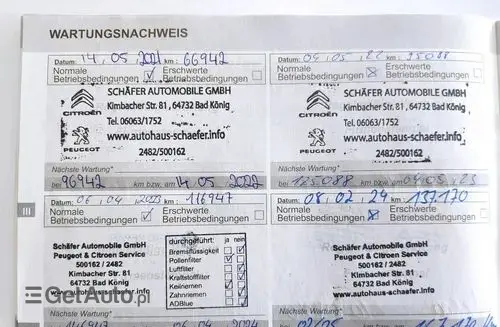 WARTUNGSNACHWEIS
Datum: 14.05.2021 km: 66942
Normale Betriebsbedingungen
Erschwerte Betriebsbedingungen
SCHÄFER AUTOMOBILE GMBH
Kimbacher Str. 81, 64732 Bad König
CITROËN
Tel. 06063/1752
www.autohaus-schaefer.info
PEUGEOT
2482/500162
Nächste Wartung*
bei 96942 km bzw. am 14.05.2022
Datum: 04.05.22 km: 95088
Normale Betriebsbedingungen
Erschwerte Betriebsbedingungen
SCHÄFER AUTOMOBILE GMBH
Kimbacher Str. 81, 64732 Bad König
CITROËN
Tel. 06063/1752
www.autohaus-schaefer.info
PEUGEOT
2482/500162
Nächste Wartung*
bei 125088 km bzw. am 04.05.23
III
Datum: 06.04.2023 km: 116947
Normale Betriebsbedingungen
Erschwerte Betriebsbedingungen
Schäfer Automobile GmbH
Peugeot & Citroen Service
500162 / 2482
Kimbacher Str. 81
64732 Bad König
durchgeführt: ja nein
Bremsflüssigkeit
Pollenfilter
Luftfilter
Kraftstofffilter
Keilriemen
Zahnriemen
ADBlue
Nächste Wartung*
Datum: 08.02.24 km: 137170
Normale Betriebsbedingungen
Erschwerte Betriebsbedingungen
Schäfer Automobile GmbH
Peugeot & Citroen Service
500162 / 2482
Kimbacher Str. 81
64732 Bad König
Nächste Wartung*
GetAuto.pl